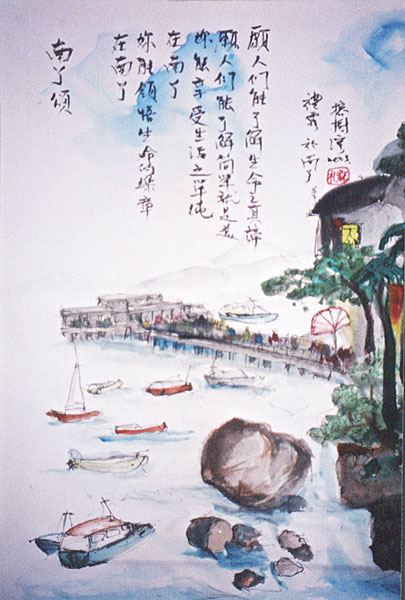 南丫頌
在南丫
妳能領悟生命的樂章
在南丫
妳能享受生活之单纯
願人们能了解简单就是美
願人们能了解生命之真諦
於南丫
榕樹灣 2003